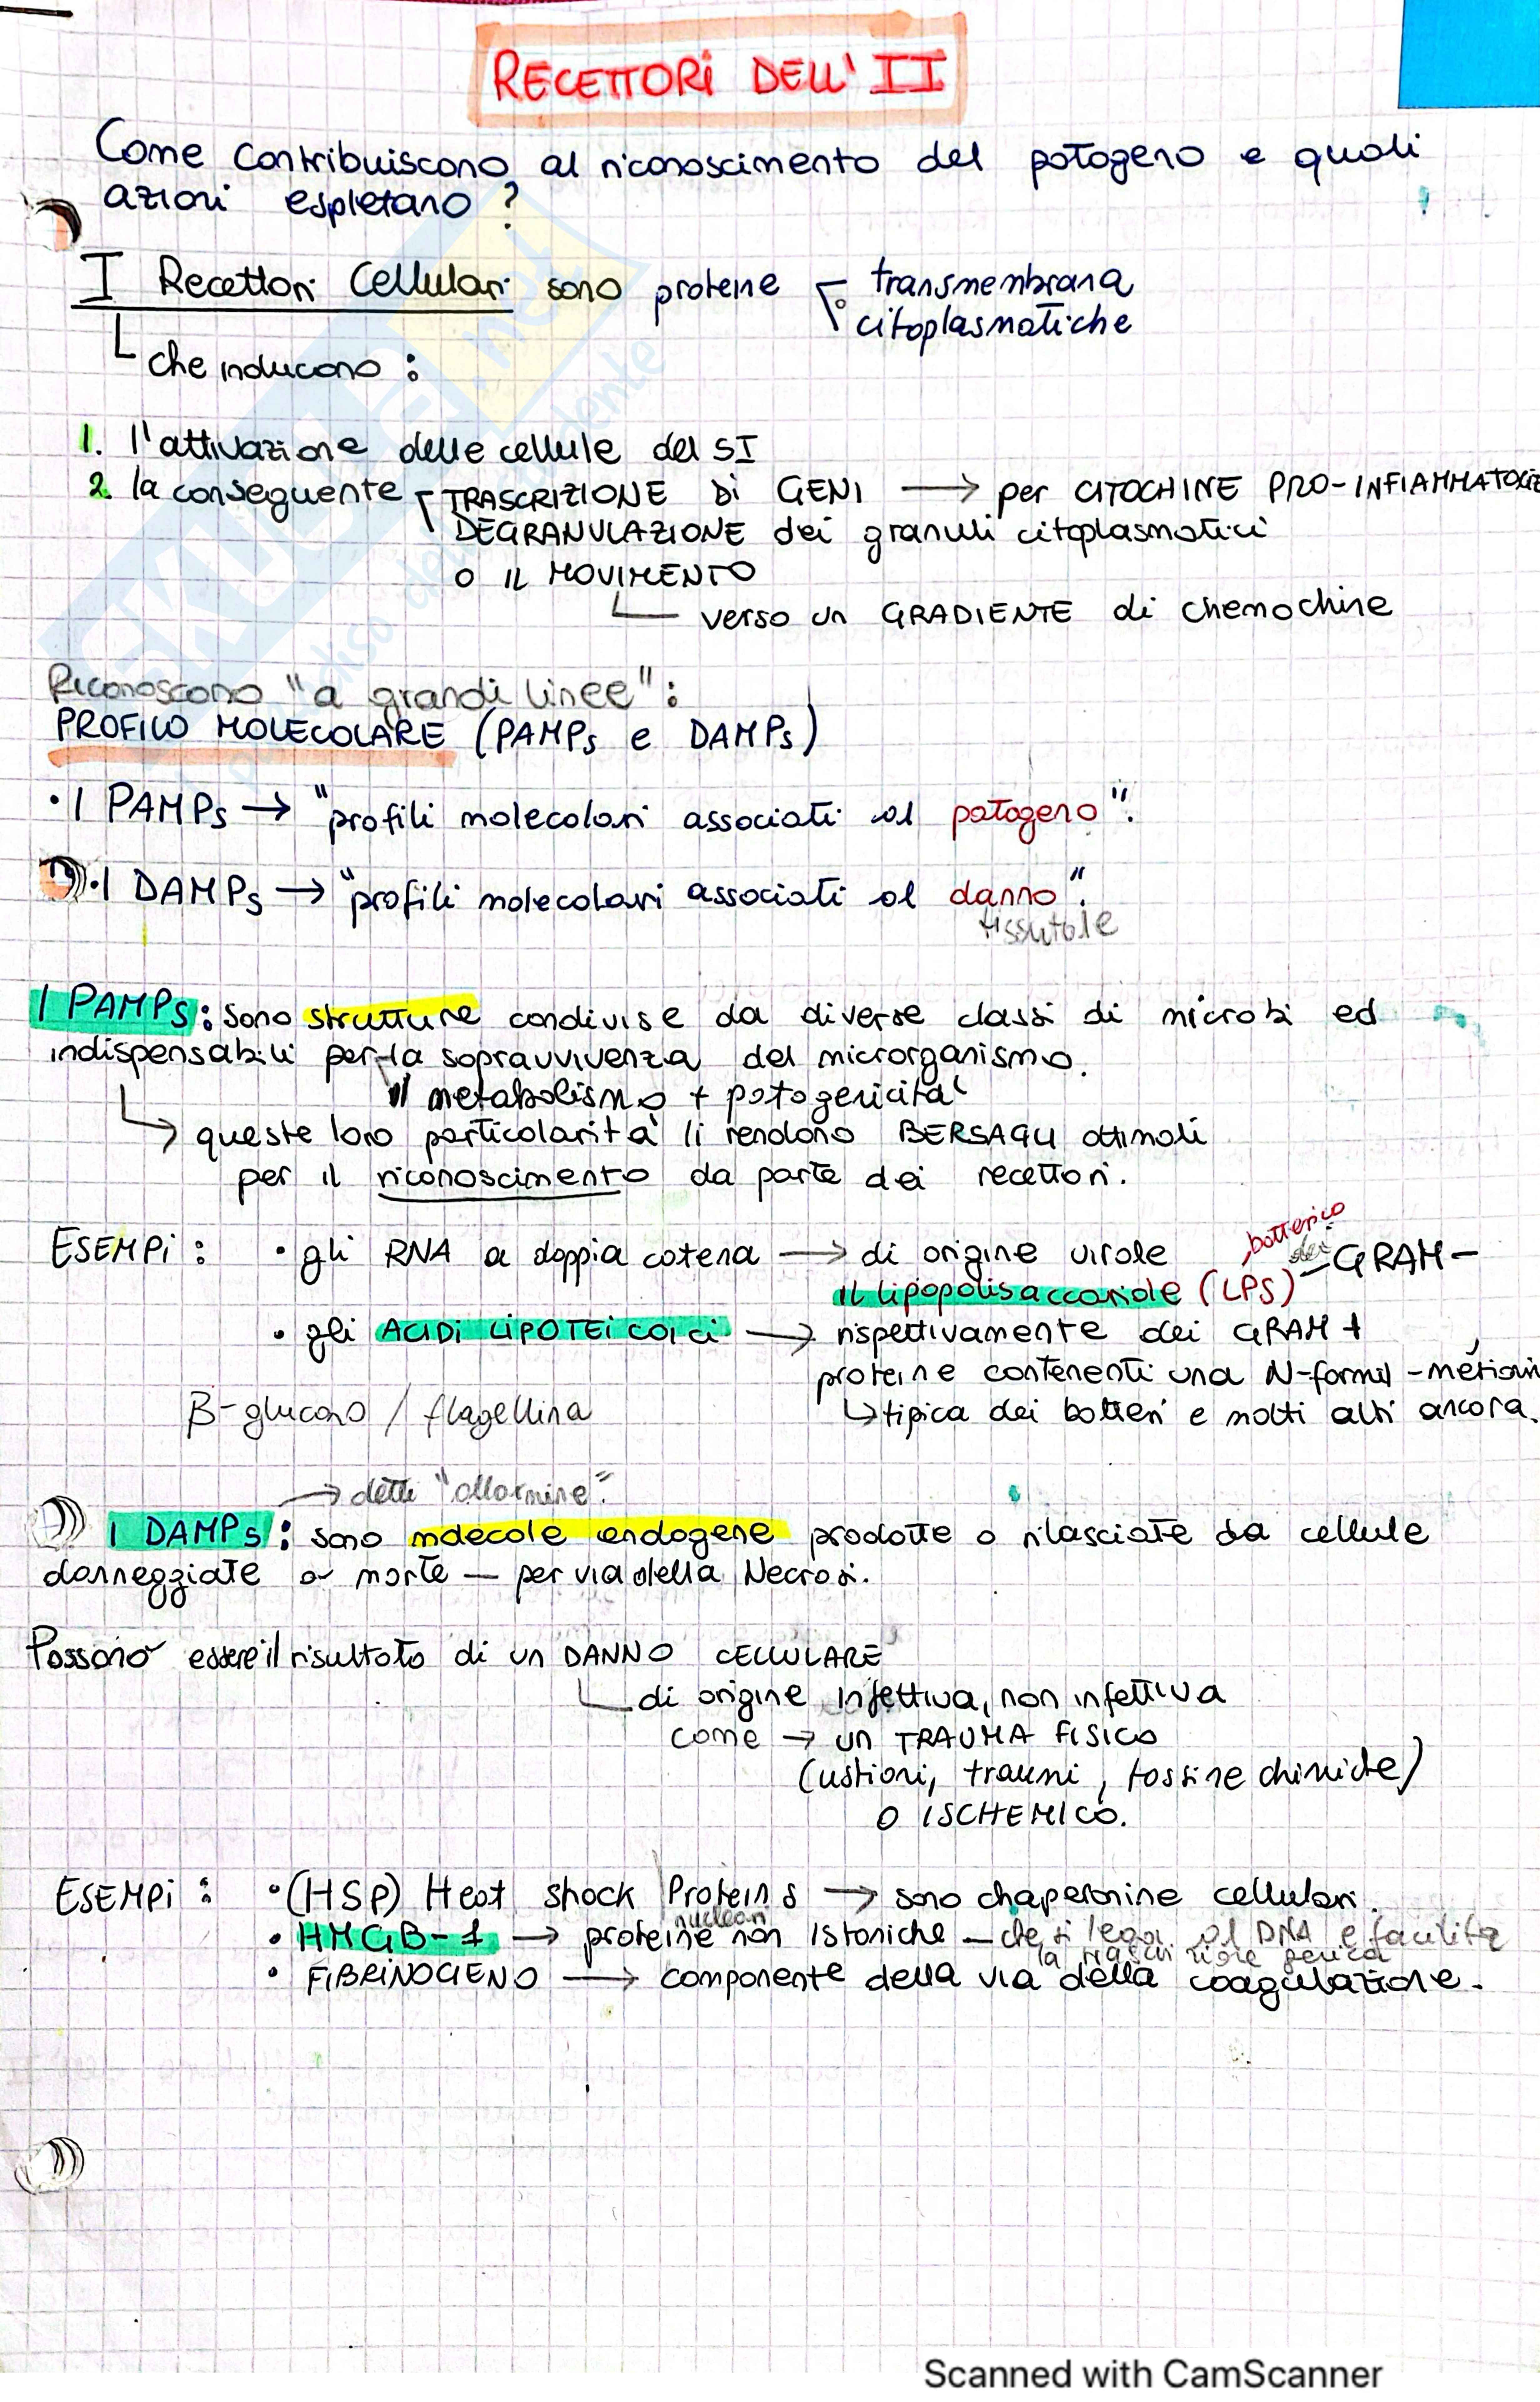 RECETTORI DELL'II
Come contribuiscono al riconoscimento del patogeno e quali
azioni espletano?
I Recettori Cellulari sono proteine transmembrana
citoplasmatiche
che inducono:
1. l'attivazione delle cellule del SI
2. la conseguente TRASCRIZIONE Di GENI → per CITOCHINE PRO-INFIAMMATORIE
DEGRANULAZIONE dei granuli citoplasmatici
O IL MOVIMENTO
verso un GRADIENTE di chemochine
Riconoscono "a grandi linee":
PROFILO MOLECOLARE (PAMPs e DAMPs)
• I PAMPs → "profili molecolari associati al patogeno".
• I DAMPs → "profili molecolari associati al danno".
tissutale
I PAMPs: sono strutture condivise da diverse classi di microbi ed
indispensabili per la sopravvivenza del microrganismo.
il metabolismo + patogenicità
→ queste loro particolarità li rendono BERSAGLI ottimali
per il riconoscimento da parte dei recettori.
batterico
ESEMPi: • gli RNA a doppia catena → di origine virale
il lipopolisaccaride (LPS) dei GRAM -
• gli ACIDI LIPOTEICOICI → rispettivamente dei GRAM +
proteine contenenti una N-formil-metionin
β-glucano / flagellina
↳ tipica dei batteri e molti altri ancora.
→ dette "allarmine".
I DAMPs: sono molecole endogene prodotte o rilasciate da cellule
danneggiate o morte — per via della Necrosi.
Possono essere il risultato di un DANNO CELLULARE
di origine infettiva, non infettiva
come → un TRAUMA FISICO
(ustioni, traumi, tossine chimiche)
O ISCHEMICO.
ESEMPi: • (HSP) Heat shock Proteins → sono chaperonine cellulari.
nucleari
• HMGB-1 → proteine non istoniche — che si lega al DNA e facilita
la trascrizione genica
• FIBRINOGENO → componente della via della coagulazione.
SKUOLA.net
Scanned with CamScanner